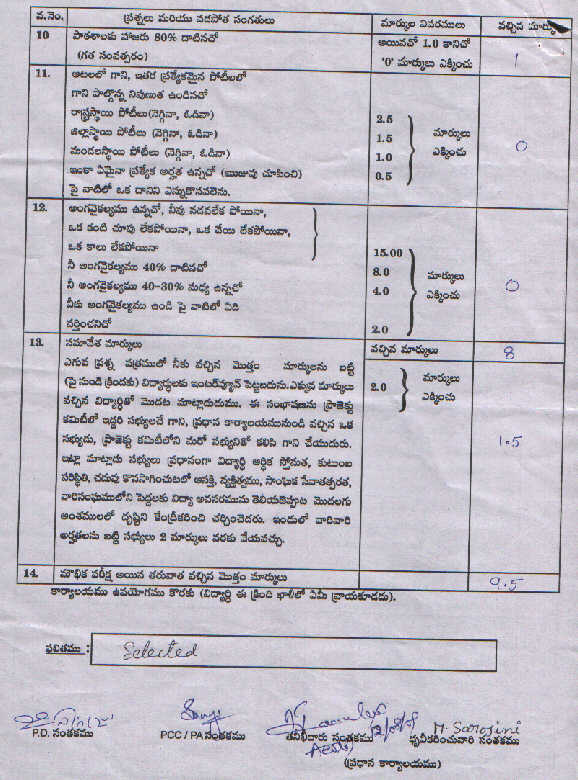 వ.నెం. ప్రశ్నలు మరియు వడపోత సంగతులు మార్కుల వివరములు వచ్చిన మార్కు
10 పాఠశాలకు హాజరు 80% దాటినచో అయినచో 1.0 కానిచో
(గత సంవత్సరం) '0' మార్కులు ఎక్కించు 1
11. ఆటలలో గాని, ఇతర ప్రత్యేకమైన పోటీలలో
గాని పాల్గొన్న నిపుణుత ఉండినచో
రాష్ట్రస్థాయి పోటీలు(నెగ్గినా, ఓడినా) 2.5 మార్కులు
జిల్లాస్థాయి పోటీలు (నెగ్గినా, ఓడినా) 1.5 ఎక్కించు 0
మండలస్థాయి పోటీలు (నెగ్గినా, ఓడినా) 1.0
ఇంకా ఏమైనా ప్రత్యేక అర్హత ఉన్నచో (ఋజువు చూపించి) 0.5
పై వాటిలో ఒక దానిని ఎన్నుకొనవలెను.
12. అంగవైకల్యము ఉన్నచో, నీవు నడవలేక పోయినా,
ఒక కంటి చూపు లేకపోయినా, ఒక చేయి లేకపోయినా,
ఒక కాలు లేకపోయినా 15.00
నీ అంగవైకల్యము 40% దాటినచో 8.0 మార్కులు
నీ అంగవైకల్యము 40-30% మధ్య ఉన్నచో 4.0 ఎక్కించు 0
నీకు అంగవైకల్యము ఉండి పై వాటిలో ఏది
వర్తించనిచో 2.0
13. సమావేశ మార్కులు వచ్చిన మార్కులు 8
ఎగువ ప్రశ్న పత్రములో నీకు వచ్చిన మొత్తం మార్కులను బట్టి
(పై నుండి క్రిందకు) విద్యార్థులకు ఇంటర్వ్యూన్ పెట్టబడును.ఎక్కువ మార్కులు 2.0 మార్కులు
వచ్చిన విద్యార్థితో మొదట మాట్లాడుదుము. ఈ సంభాషణను ప్రాజెక్టు ఎక్కించు
కమిటీలో ఇద్దరి సభ్యులచే గాని, ప్రధాన కార్యాలయమునుండి వచ్చిన ఒక
సభ్యుడు, ప్రాజెక్టు కమిటీలోని మరో సభ్యునితో కలిసి గాని చేయుదురు. 1.5
ఇట్లా మాట్లాడు సభ్యులు ప్రధానంగా విద్యార్థి ఆర్థిక స్తోమత, కుటుంబ
పరిస్థితి, చదువు కొనసాగించుటలో ఆసక్తి, వ్యక్తిత్వము, సాంఘిక సేవాతత్పరత,
వారిసంఘములోని పెద్దలకు విద్యా అవసరమును తెలియజెప్పుట మొదలగు
అంశములలో దృష్టిని కేంద్రీకరించి చర్చించెదరు. ఇందులో వారివారి
అర్హతలను బట్టి సభ్యులు 2 మార్కులు వరకు వేయవచ్చు.
14. మౌఖిక పరీక్ష అయిన తరువాత వచ్చిన మొత్తం మార్కులు 9.5
కార్యాలయము ఉపయోగము కొరకు (విద్యార్థి ఈ క్రింది ఖాళీలో ఏమీ వ్రాయకూడదు).
ఫలితము : Selected
M. Sarojini
P.D. సంతకము PCC / PA సంతకము తనిఖీదారు సంతకము ధృవీకరించువారి సంతకము
(ప్రధాన కార్యాలయము)